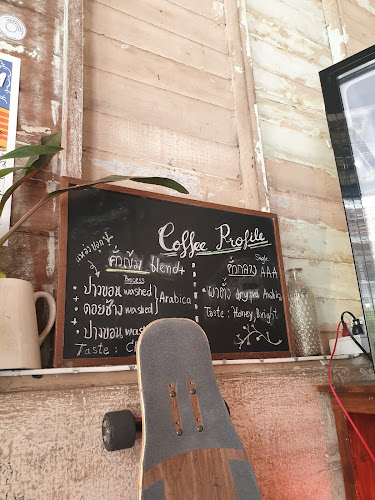 Coffee Profile
คั่วเข้ม blend
Process
ปางขอน washed
ดอยช้าง washed
Arabica
ปางขอน was
Taste : C
Single
คั่วกลาง AAA
dry pro Arabica
Taste : Honey, Bright